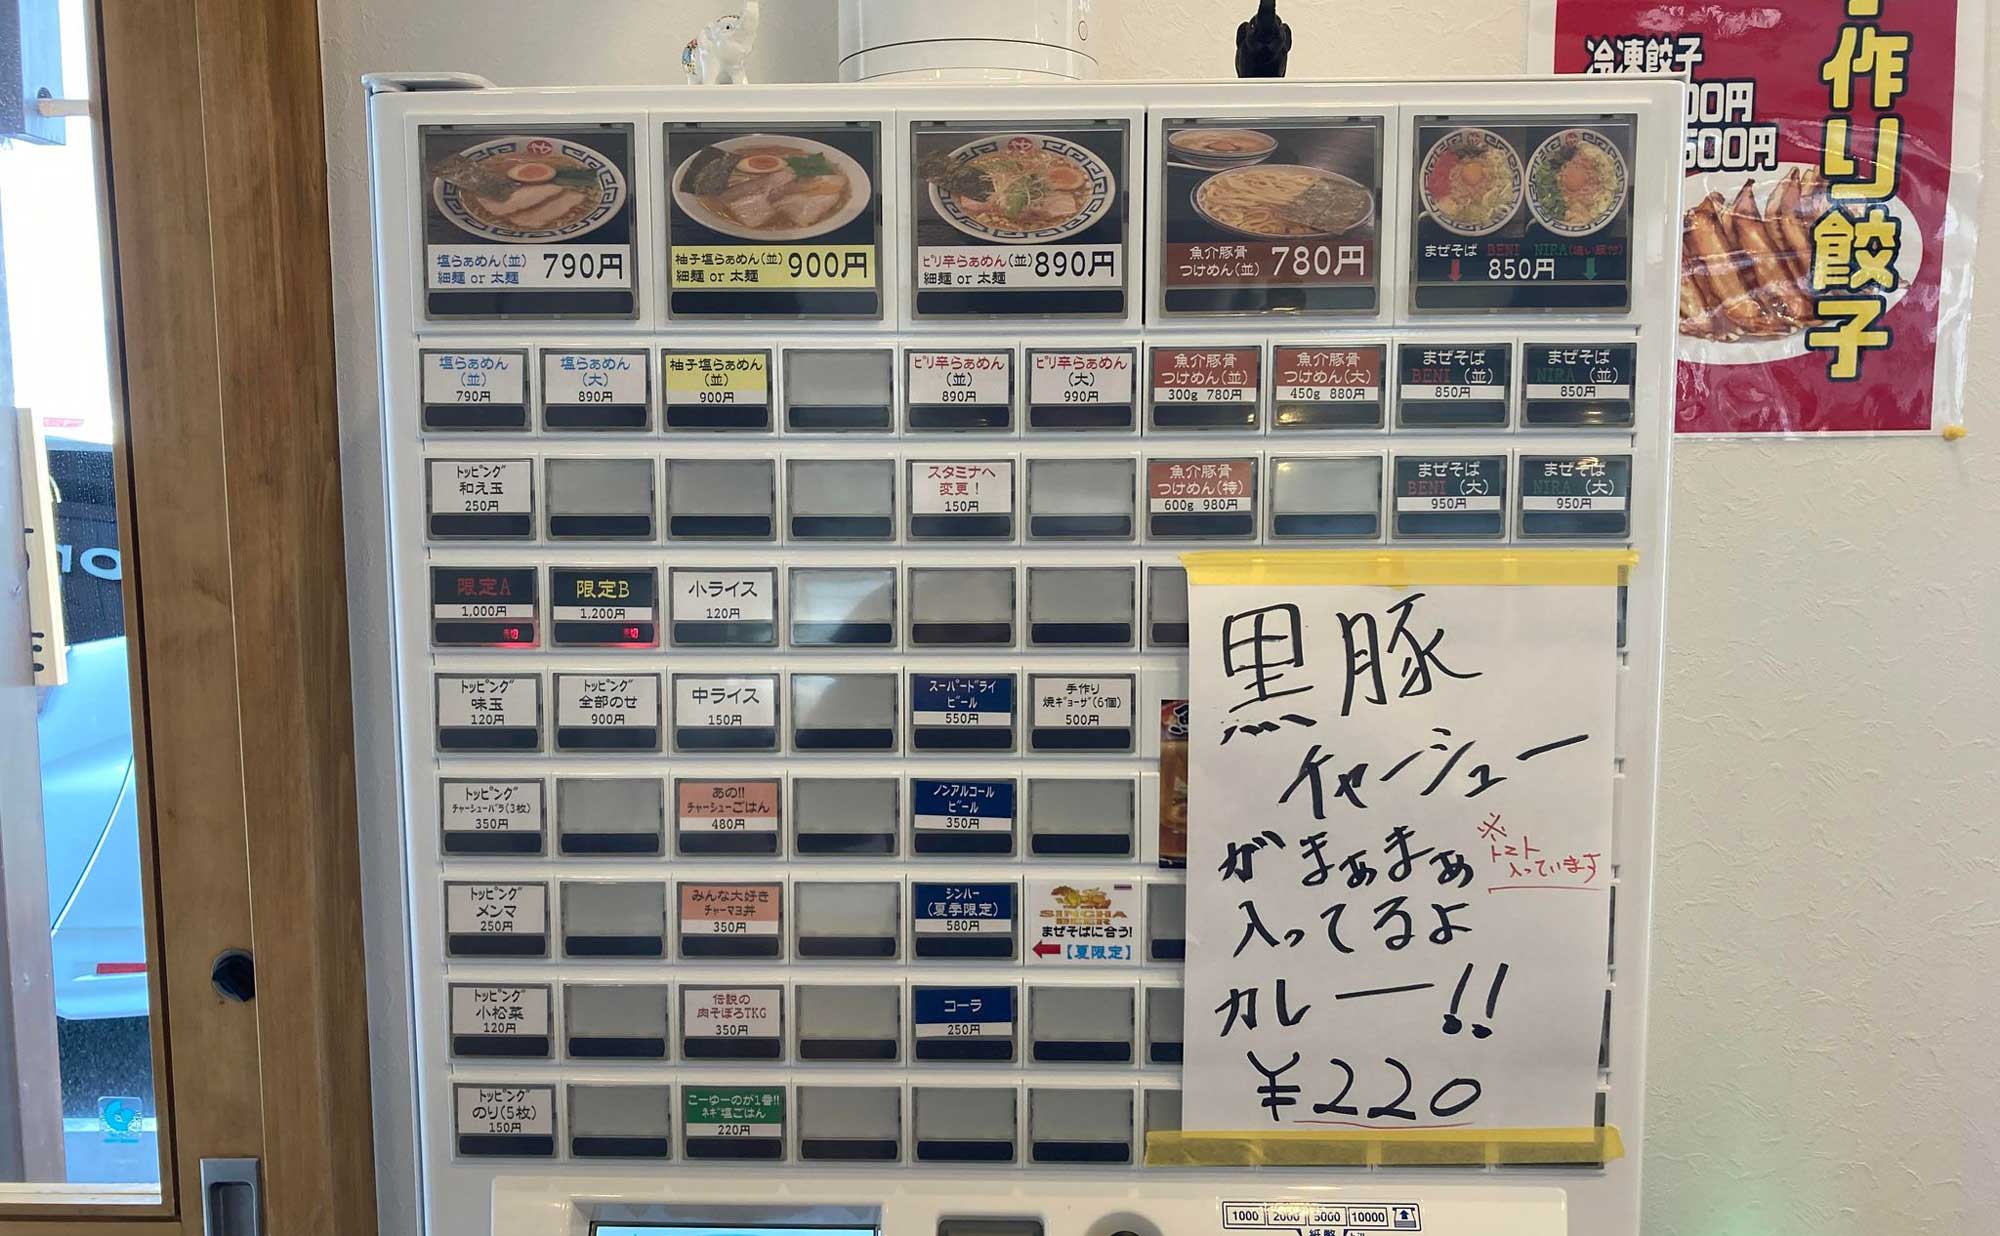 手作り餃子
冷凍餃子
00円
500円
塩らぁめん(並)
細麺 or 太麺
790円
柚子塩らぁめん(並)
細麺 or 太麺
900円
ピリ辛らぁめん(並)
細麺 or 太麺
890円
魚介豚骨
つけめん(並)
780円
まぜそば BENI NIRA(追い飯付)
850円
塩らぁめん
(並)
790円
塩らぁめん
(大)
890円
柚子塩らぁめん
(並)
900円
ピリ辛らぁめん
(並)
890円
ピリ辛らぁめん
(大)
990円
魚介豚骨
つけめん(並)
300g 780円
魚介豚骨
つけめん(大)
450g 880円
まぜそば
BENI (並)
850円
まぜそば
NIRA (並)
850円
トッピング
和え玉
250円
スタミナへ
変更!
150円
魚介豚骨
つけめん(特)
600g 980円
まぜそば
BENI (大)
950円
まぜそば
NIRA (大)
950円
限定A
1,000円
売切
限定B
1,200円
売切
小ライス
120円
トッピング
味玉
120円
トッピング
全部のせ
900円
中ライス
150円
スーパードライ
ビール
550円
手作り
焼ギョーザ(6個)
500円
トッピング
チャーシューバラ(3枚)
350円
あの!!
チャーシューごはん
480円
ノンアルコール
ビール
350円
トッピング
メンマ
250円
みんな大好き
チャーマヨ丼
350円
シンハー
(夏季限定)
580円
SINGHA
BEER
まぜそばに合う!
【夏限定】
トッピング
小松菜
120円
伝説の
肉そぼろTKG
350円
コーラ
250円
トッピング
のり(5枚)
150円
こーゆーのが1番!!
ネギ塩ごはん
220円
黒豚
チャーシュー
がまぁまぁ
※トマト
入っています
入ってるよ
カレー!!
¥220
1000 2000 5000 10000
紙幣